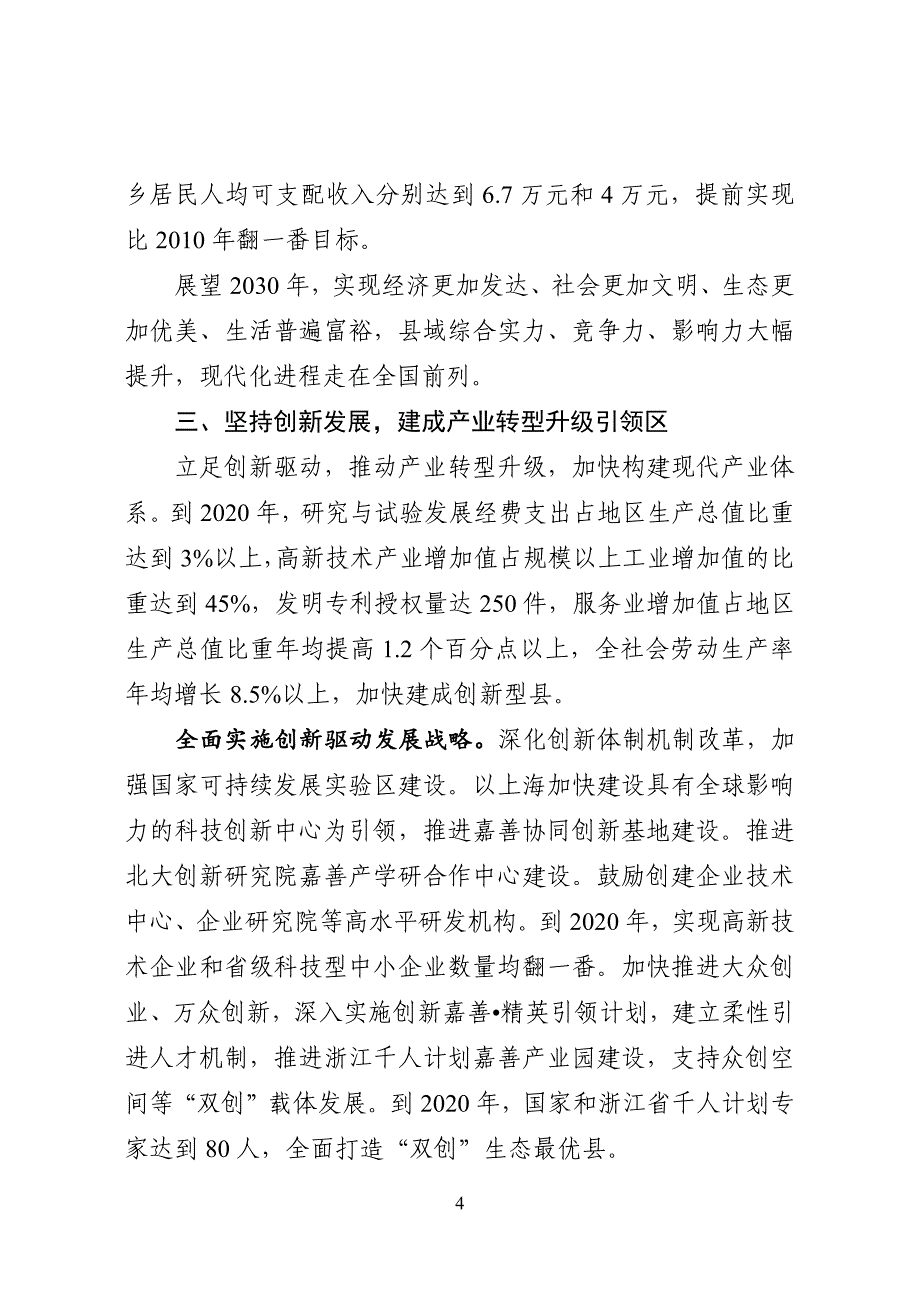 乡居民人均可支配收入分别达到 6.7 万元和 4 万元，提前实现
比 2010 年翻一番目标。
展望 2030 年，实现经济更加发达、社会更加文明、生态更
加优美、生活普遍富裕，县域综合实力、竞争力、影响力大幅
提升，现代化进程走在全国前列。
三、坚持创新发展，建成产业转型升级引领区
立足创新驱动，推动产业转型升级，加快构建现代产业体
系。到 2020 年，研究与试验发展经费支出占地区生产总值比重
达到 3%以上，高新技术产业增加值占规模以上工业增加值的比
重达到 45%，发明专利授权量达 250 件，服务业增加值占地区
生产总值比重年均提高 1.2 个百分点以上，全社会劳动生产率
年均增长 8.5%以上，加快建成创新型县。
全面实施创新驱动发展战略。深化创新体制机制改革，加
强国家可持续发展实验区建设。以上海加快建设具有全球影响
力的科技创新中心为引领，推进嘉善协同创新基地建设。推进
北大创新研究院嘉善产学研合作中心建设。鼓励创建企业技术
中心、企业研究院等高水平研发机构。到 2020 年，实现高新技
术企业和省级科技型中小企业数量均翻一番。加快推进大众创
业、万众创新，深入实施创新嘉善•精英引领计划，建立柔性引
进人才机制，推进浙江千人计划嘉善产业园建设，支持众创空
间等“双创”载体发展。到 2020 年，国家和浙江省千人计划专
家达到 80 人，全面打造“双创”生态最优县。
4